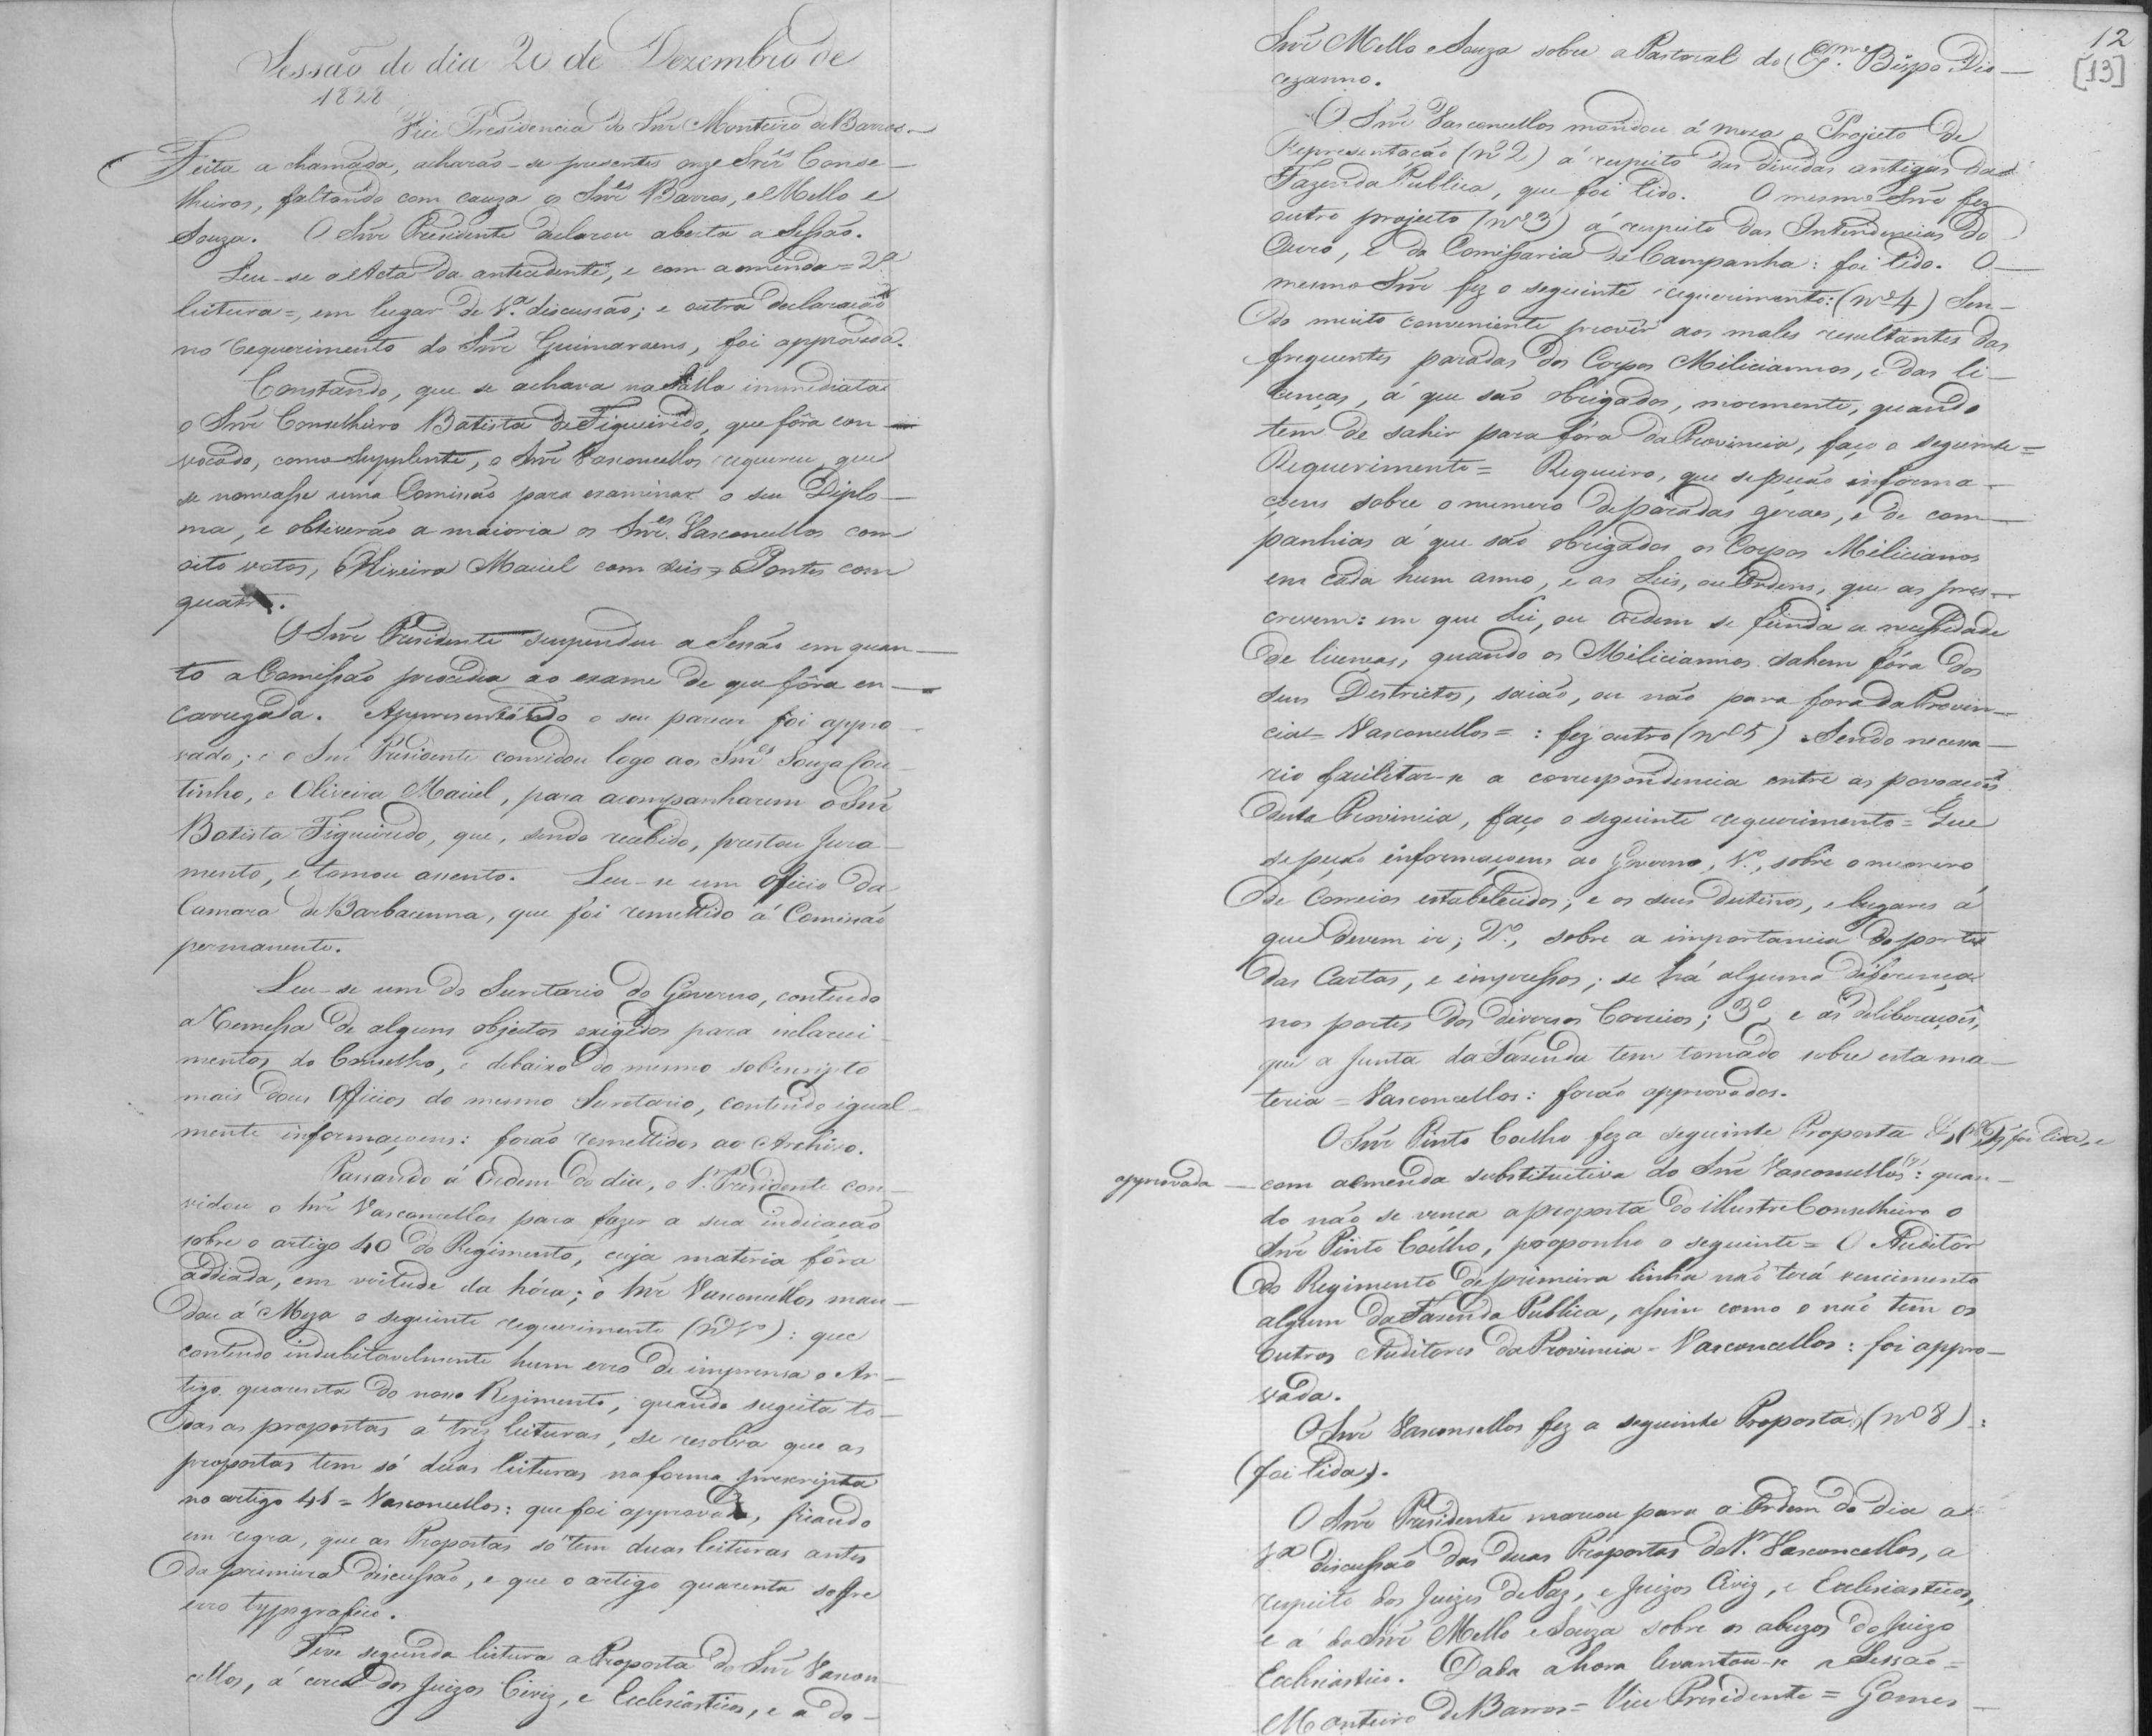 Sessão do dia 20 de Dezembro de
1828
Vice Presidencia do Snr̃ Monteiro de Barros.—
Feita a chamada, acharão-se presentes onze Snr̃es Conse-
lheiros, faltando com cauza os Snr̃es Barros, e Mello e
Souza. O Snr̃ Presidente declarou aberta a Sessão.
Leu-se a Acta da antecedente, e com a emenda = 2ª
leitura =, em lugar de 1ª discussão; e outra declaração
no requerimento do Snr̃ Guimaraens, foi approvada.
Constando, que se achava na Salla immediata
o Snr̃ Conselheiro Batista de Figueiredo, que fôra con-
vocado, como Supplente, o Snr̃ Vasconcellos requereu que
se nomeasse uma Comissão para examinar o seu Diplo-
ma, e obtiverão a maioria os Snr̃es Vasconcellos com
oito votos, Oliveira Maciel com seis, e Pontes com
quatro.
O Snr̃ Presidente suspendeu a Sessão em quan-
to a Comissão procedia ao exame de que fôra en-
carregada. Appresentando o seu parecer foi appro-
vado; e o Snr̃ Presidente convidou logo aos Snr̃es Souza Cou-
tinho, e Oliveira Maciel, para acompanharem o Snr̃
Batista Figueiredo, que, sendo recebido, prestou Jura-
mento, e tomou assento. Leu-se um Oficio da
Camara de Barbacenna, que foi remettido á Comissão
permanente.
Leu-se um do Secretario do Governo, contendo
a remessa de alguns objectos exigidos para esclareci-
mentos do Conselho, e debaixo do mesmo sobescripto
mais dous Officios do mesmo Secretario, contendo igual-
mente informaçoens: forão remettidos ao Archivo.
Passando á Ordem do dia, o V. Presidente con-
vidou o Snr̃ Vasconcellos para fazer a sua indicação
sobre o artigo 40 do Regimento, cuja materia fôra
addiada, em virtude da hóra; o Snr̃ Vasconcellos man-
dou á Meza o seguinte requerimento (Nº 1º): que
contendo indubitavelmente hum erro de imprensa o Ar-
tigo quarenta do nosso Regimento, quando sugeita to-
das as propostas a trez leituras, se resolva que as
propostas tem só duas leituras na forma prescripta
no artigo 41 = Vasconcellos: que foi approvado, ficando
em regra, que as Propostas só tem duas leituras antes
da primeira discussão, e que o artigo quarenta soffre
erro typografico.
Teve segunda leitura a Proposta do Snr̃ Vascon-
cellos, á cerca dos Juizos Civiz, e Ecclesiasticos, e a do-
12
[13]
Snr̃ Mello e Souza sobre a Pastoral do Exmº Bispo Dio-
cezanno.
O Snr̃ Vasconcellos mandou á meza o Projecto de
Representação (nº 2) á respeito das dividas antigas da
Fazenda Publica, que foi lido. O mesmo Snr̃ fez
outro projecto (nº 3) á respeito das Intendencias do
Ouro, e da Comissaria de Campanha: foi lido. O
mesmo Snr̃ fez o seguinte requerimento: (nº 4) Sen-
do muito conveniente provêr aos males resultantes das
frequentes paradas dos Corpos Miliciannos, e das li-
cenças, á que são obrigados, mormente, quando
tem de sahir para fóra da Provincia, faço o seguinte =
Requerimento = Requeiro, que se peção informa-
çoens sobre o numero de paradas geraes, e de com-
panhias á que são obrigados os Corpos Milicianos
em cada hum anno, e as Leis, ou Ordens, que as pres-
crevem: em que Lei, ou Ordem se funda a necessidade
de licenças, quando os Miliciannos sahem fóra dos
seus Destrictos, saião, ou não para fora da Provin-
cia = Vasconcellos = : fez outro (nº 5) Sendo necessa-
rio facilitar-se a correspondencia entre as povoaçoes
desta Provincia, faço o seguinte requerimento = Que
se peção informaçoens ao Governo, 1º, sobre o numero
de Correios estabelecidos; e os seus destinos, e lugares á
que devem ir; 2º, sobre a importancia do porte
das Cartas, e impressos; se há alguma diferença
nos portes dos diversos Correios; 3º, e as deliberações,
que a Junta da Fazenda tem tomado sobre esta ma-
teria = Vasconcellos: forão approvados.
O Snr̃ Pinto Coelho fez a seguinte Proposta foi lida, e
approvada — com a emenda substitutiva do Snr̃ Vasconcellos: quan-
do não se vença a proposta do illustre Conselheiro o
Snr̃ Pinto Coêlho, proponho o seguinte = O Auditôr
do Regimento de primeira linha não terá vencimento
algum da Fazenda Publica, assim como o não tem os
outros Auditores da Provincia - Vasconcellos: foi appro-
vada.
O Snr̃ Vasconsellos fez a seguinte Proposta (nº 8) :
(foi lida).
O Snr̃ Presidente marcou para a Ordem do dia a
1ª discussão das duas Propostas do Sr. Vasconcellos, a
respeito dos Juizes de Paz, e Juizos Civiz, e Ecclesiasticos,
e a do Snr̃ Mello e Souza sobre os abuzos do Juizo
Ecclesiastico. Dada a hora levantou-se a Sessão =
Monteiro de Barros = Vice Presidente = Gomes